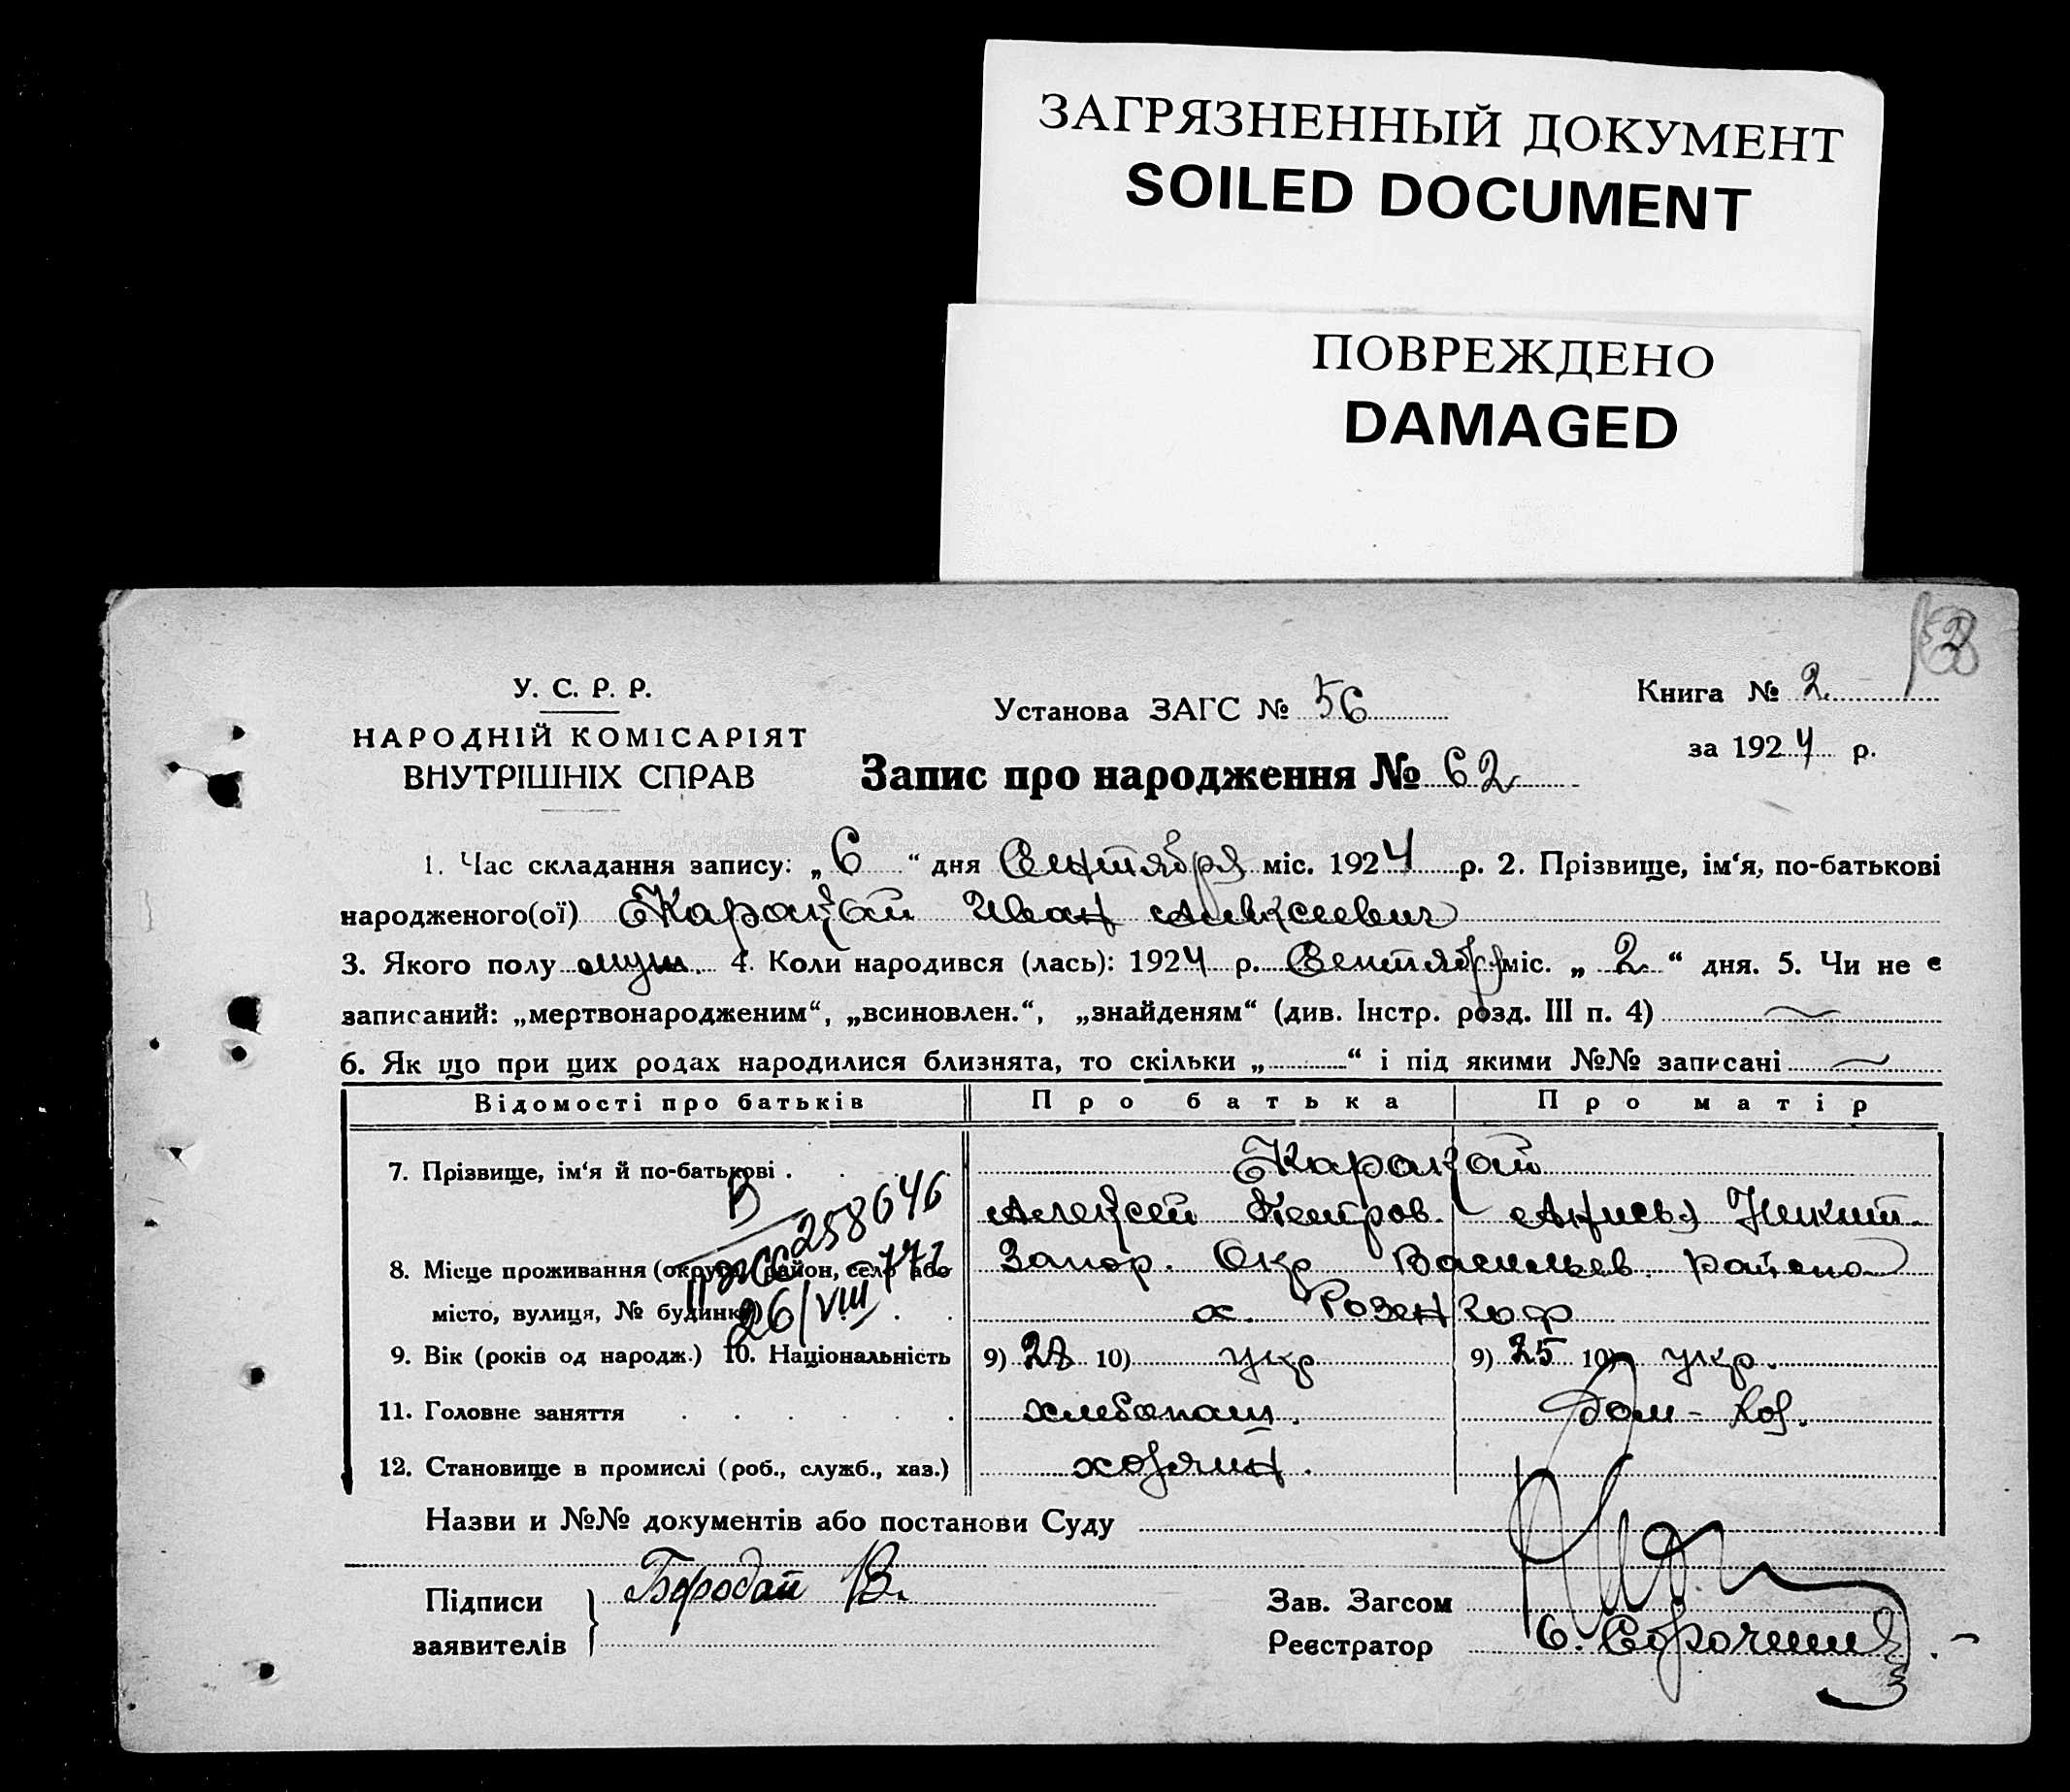 ЗАГРЯЗНЕННЫЙ ДОКУМЕНТ
SOILED DOCUMENT
ПОВРЕЖДЕНО
DAMAGED
У. С. Р. Р.
НАРОДНІЙ КОМІСАРІЯТ
ВНУТРІШНІХ СПРАВ
Установа ЗАГС № 56
Книга № 2
за 1924 р.
Запис про народження № 62
1. Час складання запису: „ 6 “ дня Сентября міс. 1924 р. 2. Прізвище, ім‘я, по-батькові
народженого(ої) Каракай Иван Алексеевич
3. Якого полу муж. 4. Коли народився (лась): 1924 р. Сентября міс. „ 2 “ дня. 5. Чи не є
записаний: „мертвонародженим“, „всиновлен.“, „знайденям“ (див. Інстр. розд. III п. 4)
6. Як що при цих родах народилися близнята, то скільки „ “ і під якими №№ записані
Відомості про батьків Про батька Про матір
7. Прізвище, ім‘я й по-батькові . Каракай
Алексей Петров. Анисья Никит.
258646
8. Місце проживання (округа, район, село або Запор. Окр Васильев. района
місто, вулиця, № будинку) х. Розенгоф
26/VIII
9. Вік (років од народж.) 10. Національність 9) 28 10) укр 9) 25 10) укр.
11. Головне заняття хлебопаш. Дом-хоз.
12. Становище в промислі (роб., служб., хаз.) хозяин.
Назви и №№ документів або постанови Суду
Підписи Бородай В. Зав. Загсом
заявителів Реєстратор С.